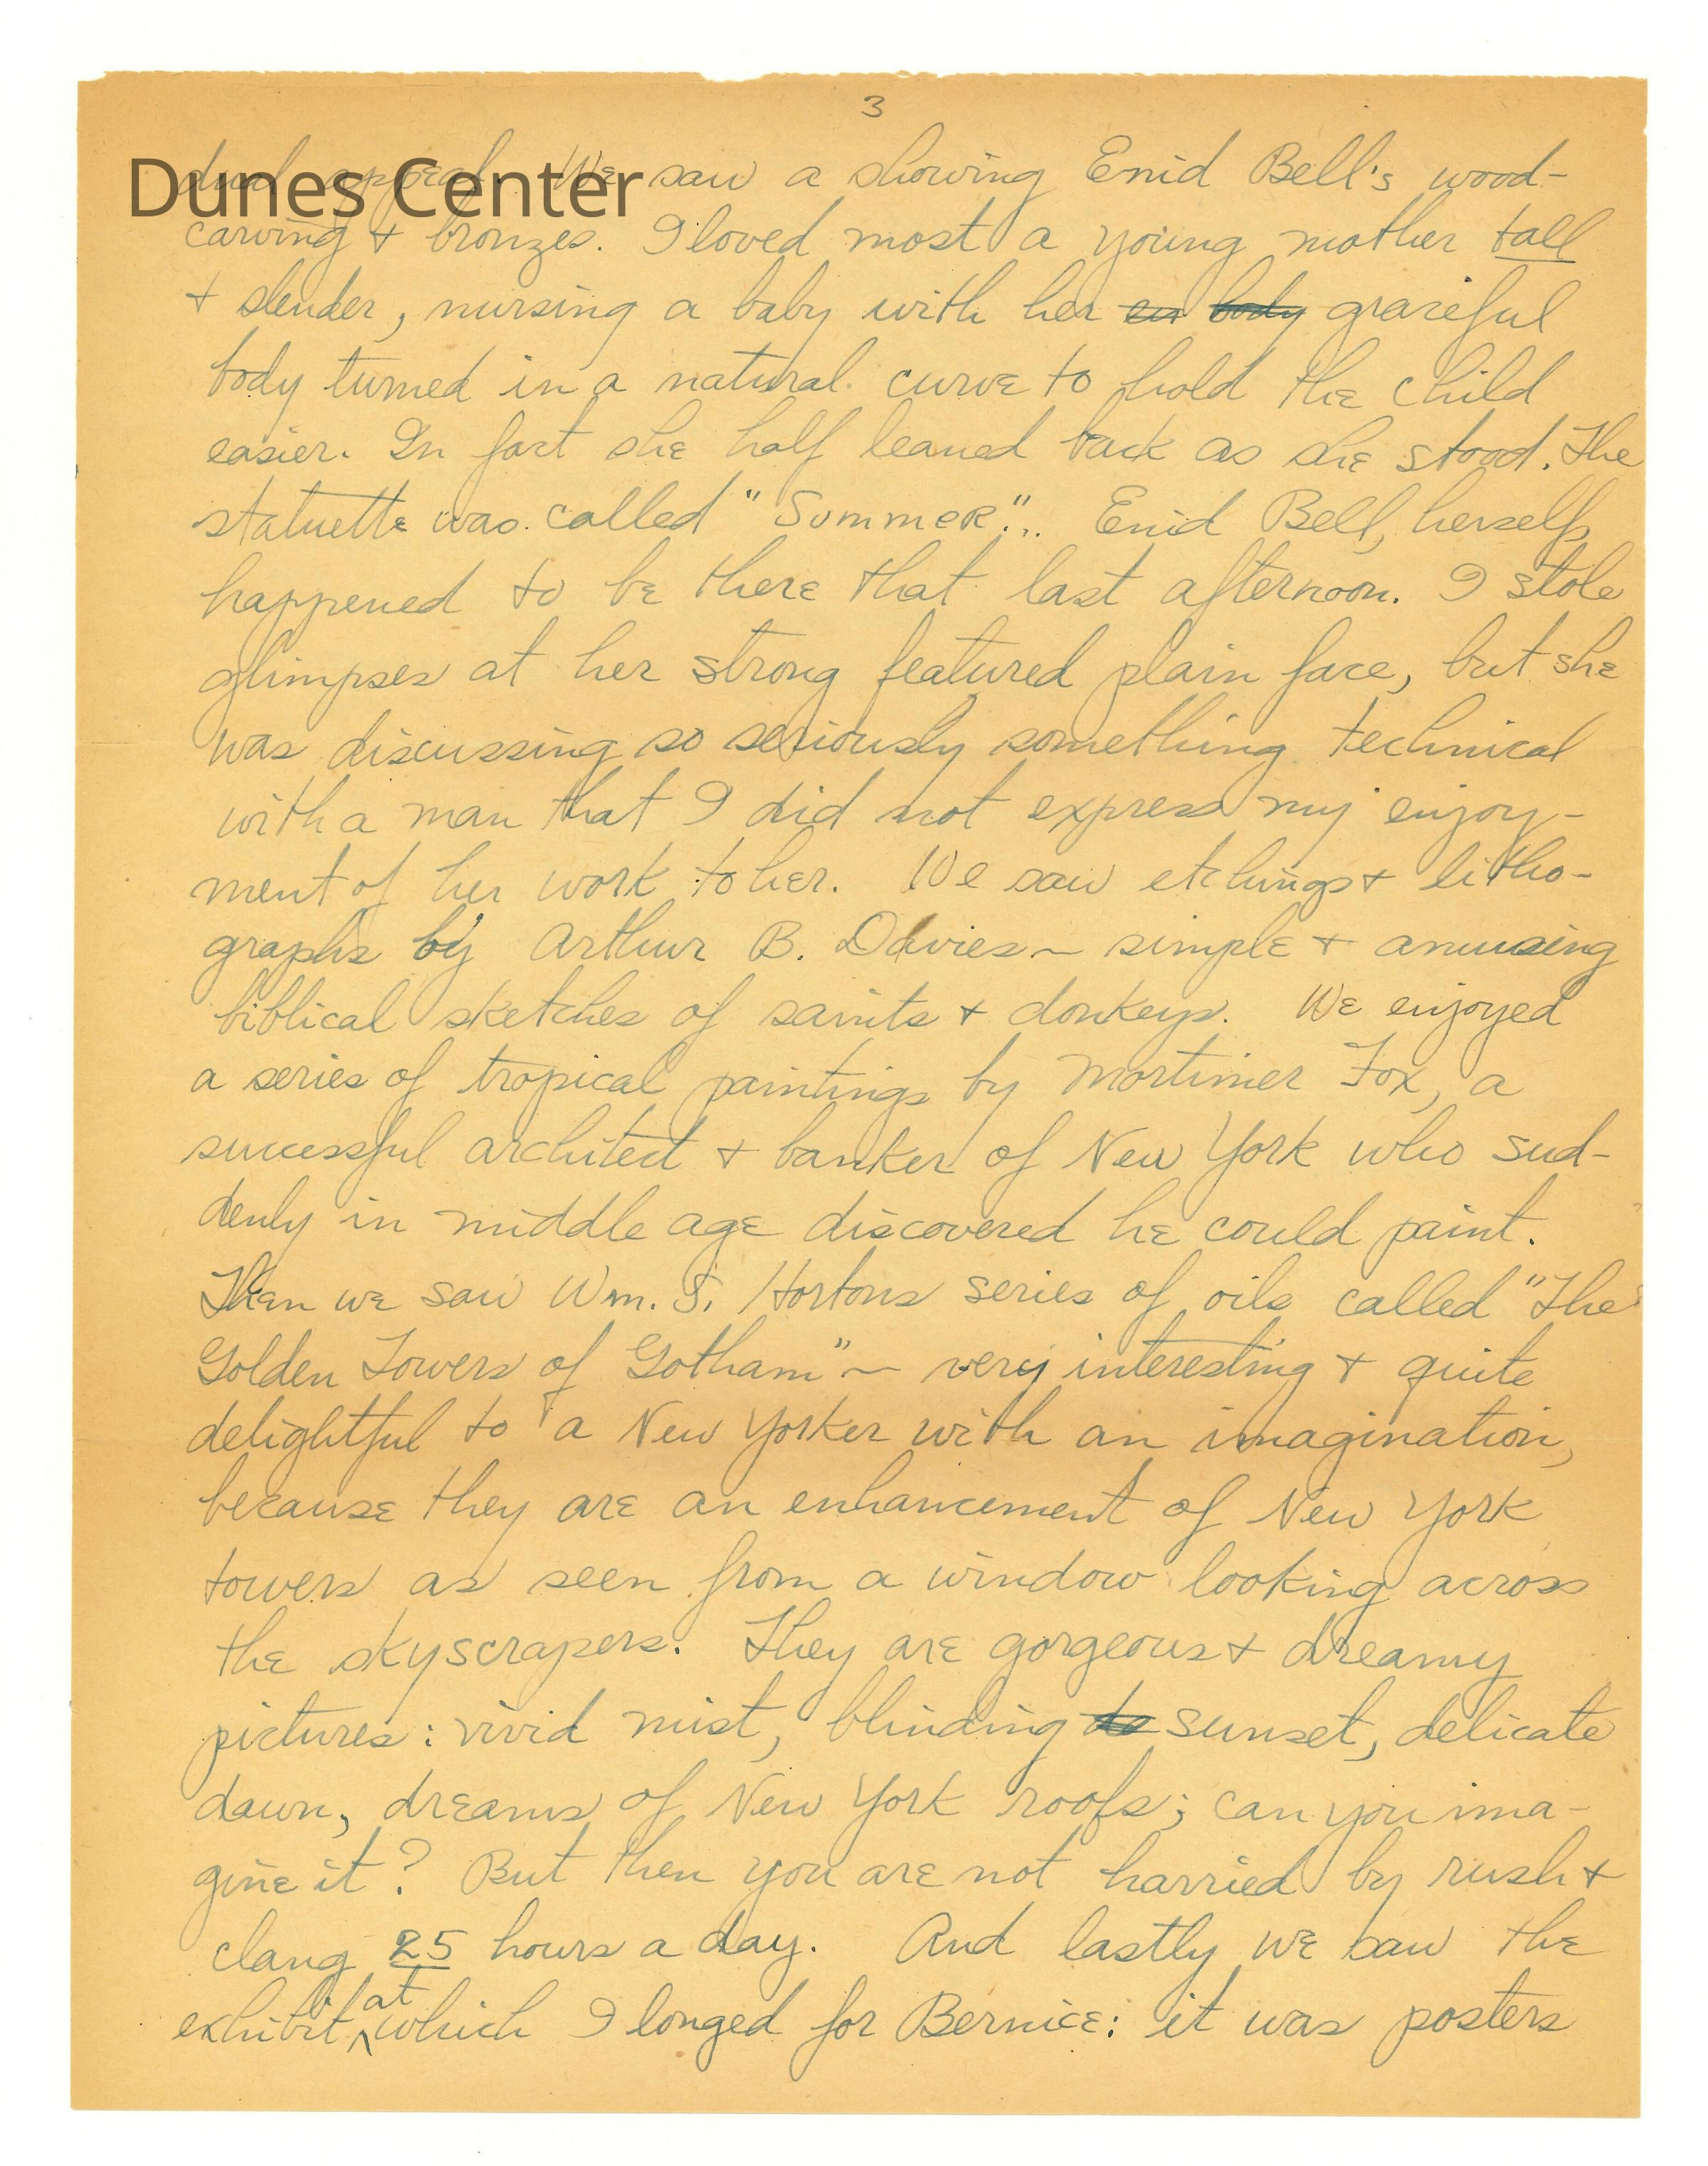 3
Dunes Center
dual appeal. We saw a showing Enid Bell's wood-
carving + bronzes. I loved most a young mother tall
+ slender, nursing a baby with her en body graceful
body turned in a natural curve to hold the child
easier. In fact she half leaned back as she stood. The
statuette was called "Summer"... Enid Bell, herself,
happened to be there that last afternoon. I stole
glimpses at her strong featured plain face, but she
was discussing so seriously something technical
with a man that I did not express my enjoy-
ment of her work to her. We saw etchings + litho-
graphs by Arthur B. Davies ~ simple + amusing
biblical sketches of saints + donkeys. We enjoyed
a series of tropical paintings by Mortimer Fox, a
successful architect + banker of New York who sud-
denly in middle age discovered he could paint.
Then we saw Wm. S. Hortons series of oils called "The
Golden Towers of Gotham" ~ very interesting + quite
delightful to a New Yorker with an imagination,
because they are an enhancement of New York
towers as seen from a window looking across
the skyscrapers. They are gorgeous + dreamy
pictures: vivid mist, blinding sunset, delicate
dawn, dreams of New York roofs; can you ima-
gine it? But then you are not harried by rush +
clang 25 hours a day. And lastly we saw the
exhibit at which I longed for Bernice: it was posters